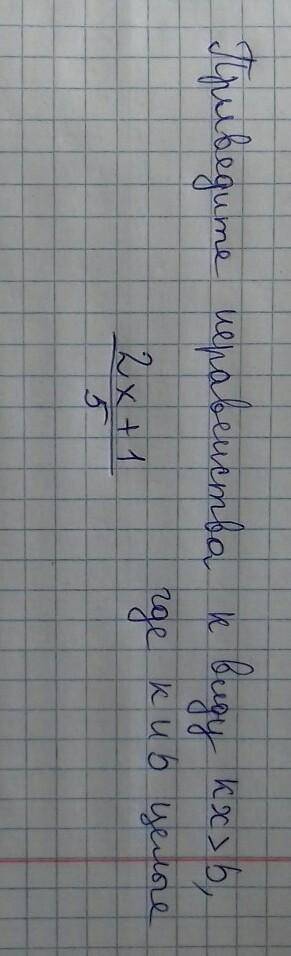 Приведите неравенства к виду kx > b,
где k и b целые
2x + 1
5